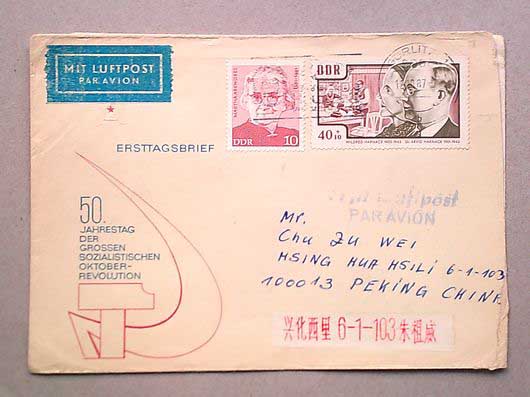 MIT LUFTPOST
PAR AVION
ERSTTAGSBRIEF
DDR
10
DDR
40+10
MILDRED HARNACK 1902-1943 · DR. ARVID HARNACK 1901-1942
PAR AVION
50.
JAHRESTAG
DER
GROSSEN
SOZIALISTISCHEN
OKTOBER-
REVOLUTION
Mr.
Chu ZU WEI
HSING HUA HSILI 6-1-103
100013 PEKING CHINA
兴化西里 6-1-103朱祖威